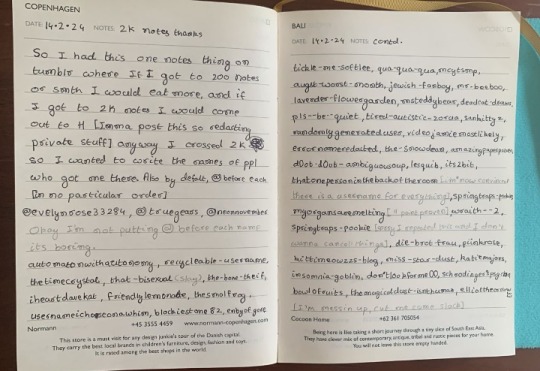 COPENHAGEN
DATE 14·2·24 NOTES 2K notes thanks
So I had this one notes thing on
tumblr where If I got to 200 notes
or smth I would eat more, and if
I got to 2K notes I would come
out to H [Imma post this so redacting
private stuff] anyway I crossed 2K
so I wanted to write the names of ppl
who got one there. Also by default, @ before each
[in no particular order]
@evelynrose33284, @truegears, @neonnovember
Okay I'm not putting @ before each name
its boring.
automatonwithautonomy, recyclable-username,
thetimecrystal, that-bisexual (slay), the-bone-theif,
iheartdavekat, friendlylemonade, thesmolfrog,
usernameichoseonawhim, blockiestone82,
Normann +45 3555 4459 www.normann-copenhagen.com
This store is a must visit for any design junkie's tour of the Danish capital.
They carry the best local brands in children's furniture, design, fashion and toys.
It is rated among the best shops in the world.
BALI
DATE 14·2·24 NOTES contd.
tickle-one-softlee, qua-qua-qua,
august-worst-month, jewish-fanboy, mr-booboo,
lavender-flowergarden, rosteddybear,
pls-be-quiet, tired-autistic-zorua,
randomlygenerateduser, videojamiemostlikely,
errornonameredacted, the-snowdean,
d00t-d00t-ambiguousoup, lesquib, its2bit,
thatonepersoninthebackoftheroom [am now convinced
there is a username for everything],
myorgansaremelting wraith--2,
springtraps-pookie [sorry I repeated this and I don't
wanna cancel things], die-brot-frau, plinkrose,
kittimeowzzs-blog, miss-star-dust,
insomnia-goblin,
bowloffruits,
[I'm messin up, cut me some slack]
Cocoon Home +62 361 705054
Being here is like taking a short journey through a tiny slice of South East Asia.
They have clever mix of contemporary, antique, tribal and rustic pieces for your home.
You will not leave this store empty handed.